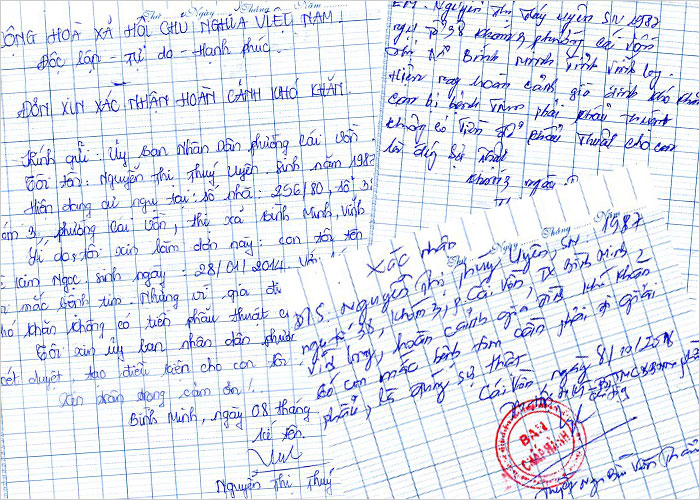 Thứ Ngày Tháng Năm
CỘNG HOÀ XÃ HỘI CHỦ NGHĨA VIỆT NAM
Độc lập - Tự do - Hạnh phúc.
ĐƠN XIN XÁC NHẬN HOÀN CẢNH KHÓ KHĂN.
Kính gửi: Ủy ban Nhân dân phường Cái Vồn
Tôi tên: Nguyễn Thi Thuý Uyên. Sinh năm 1987
Hiện đang cư ngụ tại: số nhà: 256/80,
3, phường Cái Vồn, thị xã Bình Minh, Vĩnh
Lý do, tôi xin làm đơn này: con tôi tên
Kim Ngọc. Sinh ngày: 28/01/2014.
mắc bệnh tim. Nhưng vì gia
khó khăn không có tiền phẩu thuật
Tôi xin ủy ban nhân dân phườ
xét duyệt, tạo điều kiện cho con tôi
Xin trân trọng cảm ơn!
Bình Minh, ngày 08 tháng
Ký tên.
Nguyễn Thi Thuý
EM. Nguyễn Thị Thúy Uyên SN 1987
ngụ tổ 38 khóm 3, phường cái vồn
thị xã Bình minh Vĩnh long.
Hiện nay hoàn cảnh gia đình khó khăn
con bị bệnh Tim phải phẩu thuật
không có Tiền để phẩu Thuật cho con
là đúng sự Thật
khóm 3 ngày
Thứ Ngày Tháng Năm
Xác nhận
Nguyễn Thị Thúy Uyên, SN 1987
ngụ tổ 38, khóm 3, p. Cái Vồn, TX Bình Minh
Vĩnh Long, hoàn cảnh gia đình khó khăn
Có con mắc bệnh tim cần phải đi giải
phẩu, là đúng sự thật
Cái Vồn, ngày 8/10/2018
BAN
CHẤP HÀNH